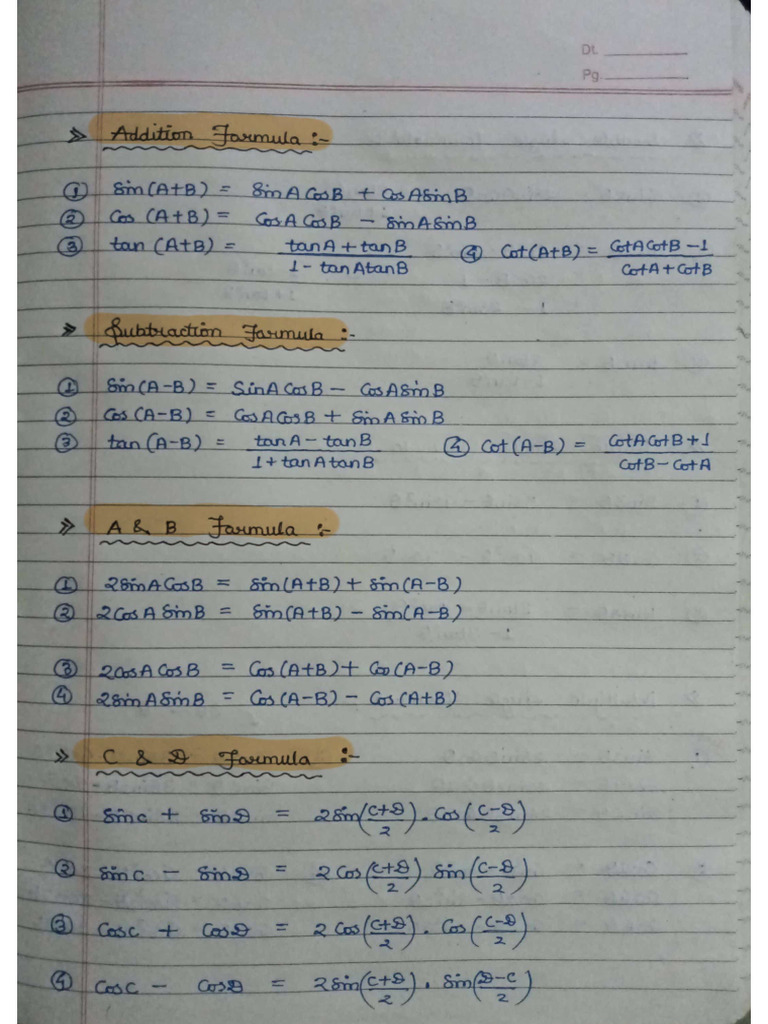 Dt. ________
Pg. ________
» Addition Formula :-
① Sin(A+B) = SinACosB + CosASinB
② Cos (A+B) = CosACosB - SinASinB
③ tan (A+B) = (tanA + tanB)/(1 - tanAtanB) ④ Cot(A+B) = (CotACotB - 1)/(CotA + CotB)
» Subtraction Formula :-
① Sin(A-B) = SinACosB - CosASinB
② Cos (A-B) = CosACosB + SinASinB
③ tan (A-B) = (tanA - tanB)/(1 + tanAtanB) ④ Cot(A-B) = (CotACotB + 1)/(CotB - CotA)
» A & B Formula :-
① 2SinACosB = Sin(A+B) + Sin(A-B)
② 2CosASinB = Sin(A+B) - Sin(A-B)
③ 2CosACosB = Cos(A+B) + Cos(A-B)
④ 2SinASinB = Cos(A-B) - Cos(A+B)
» C & D Formula :-
① SinC + SinD = 2Sin((C+D)/2) . Cos((C-D)/2)
② SinC - SinD = 2Cos((C+D)/2) Sin((C-D)/2)
③ CosC + CosD = 2Cos((C+D)/2) . Cos((C-D)/2)
④ CosC - CosD = 2Sin((C+D)/2) . Sin((D-C)/2)